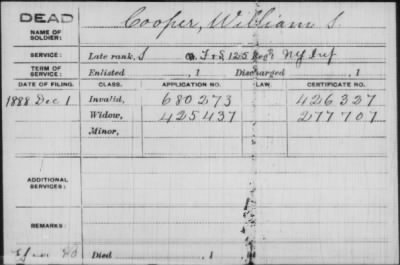 DEAD
NAME OF SOLDIER:
Cooper, William S
SERVICE:
Late rank, S F+S 125 Reg't NY Inf
TERM OF SERVICE:
Enlisted , 1 Discharged , 1
DATE OF FILING. CLASS. APPLICATION NO. LAW. CERTIFICATE NO.
1888 Dec 1 Invalid, 680273 426327
Widow, 425437 277707
Minor,
ADDITIONAL SERVICES:
REMARKS:
Died , 1